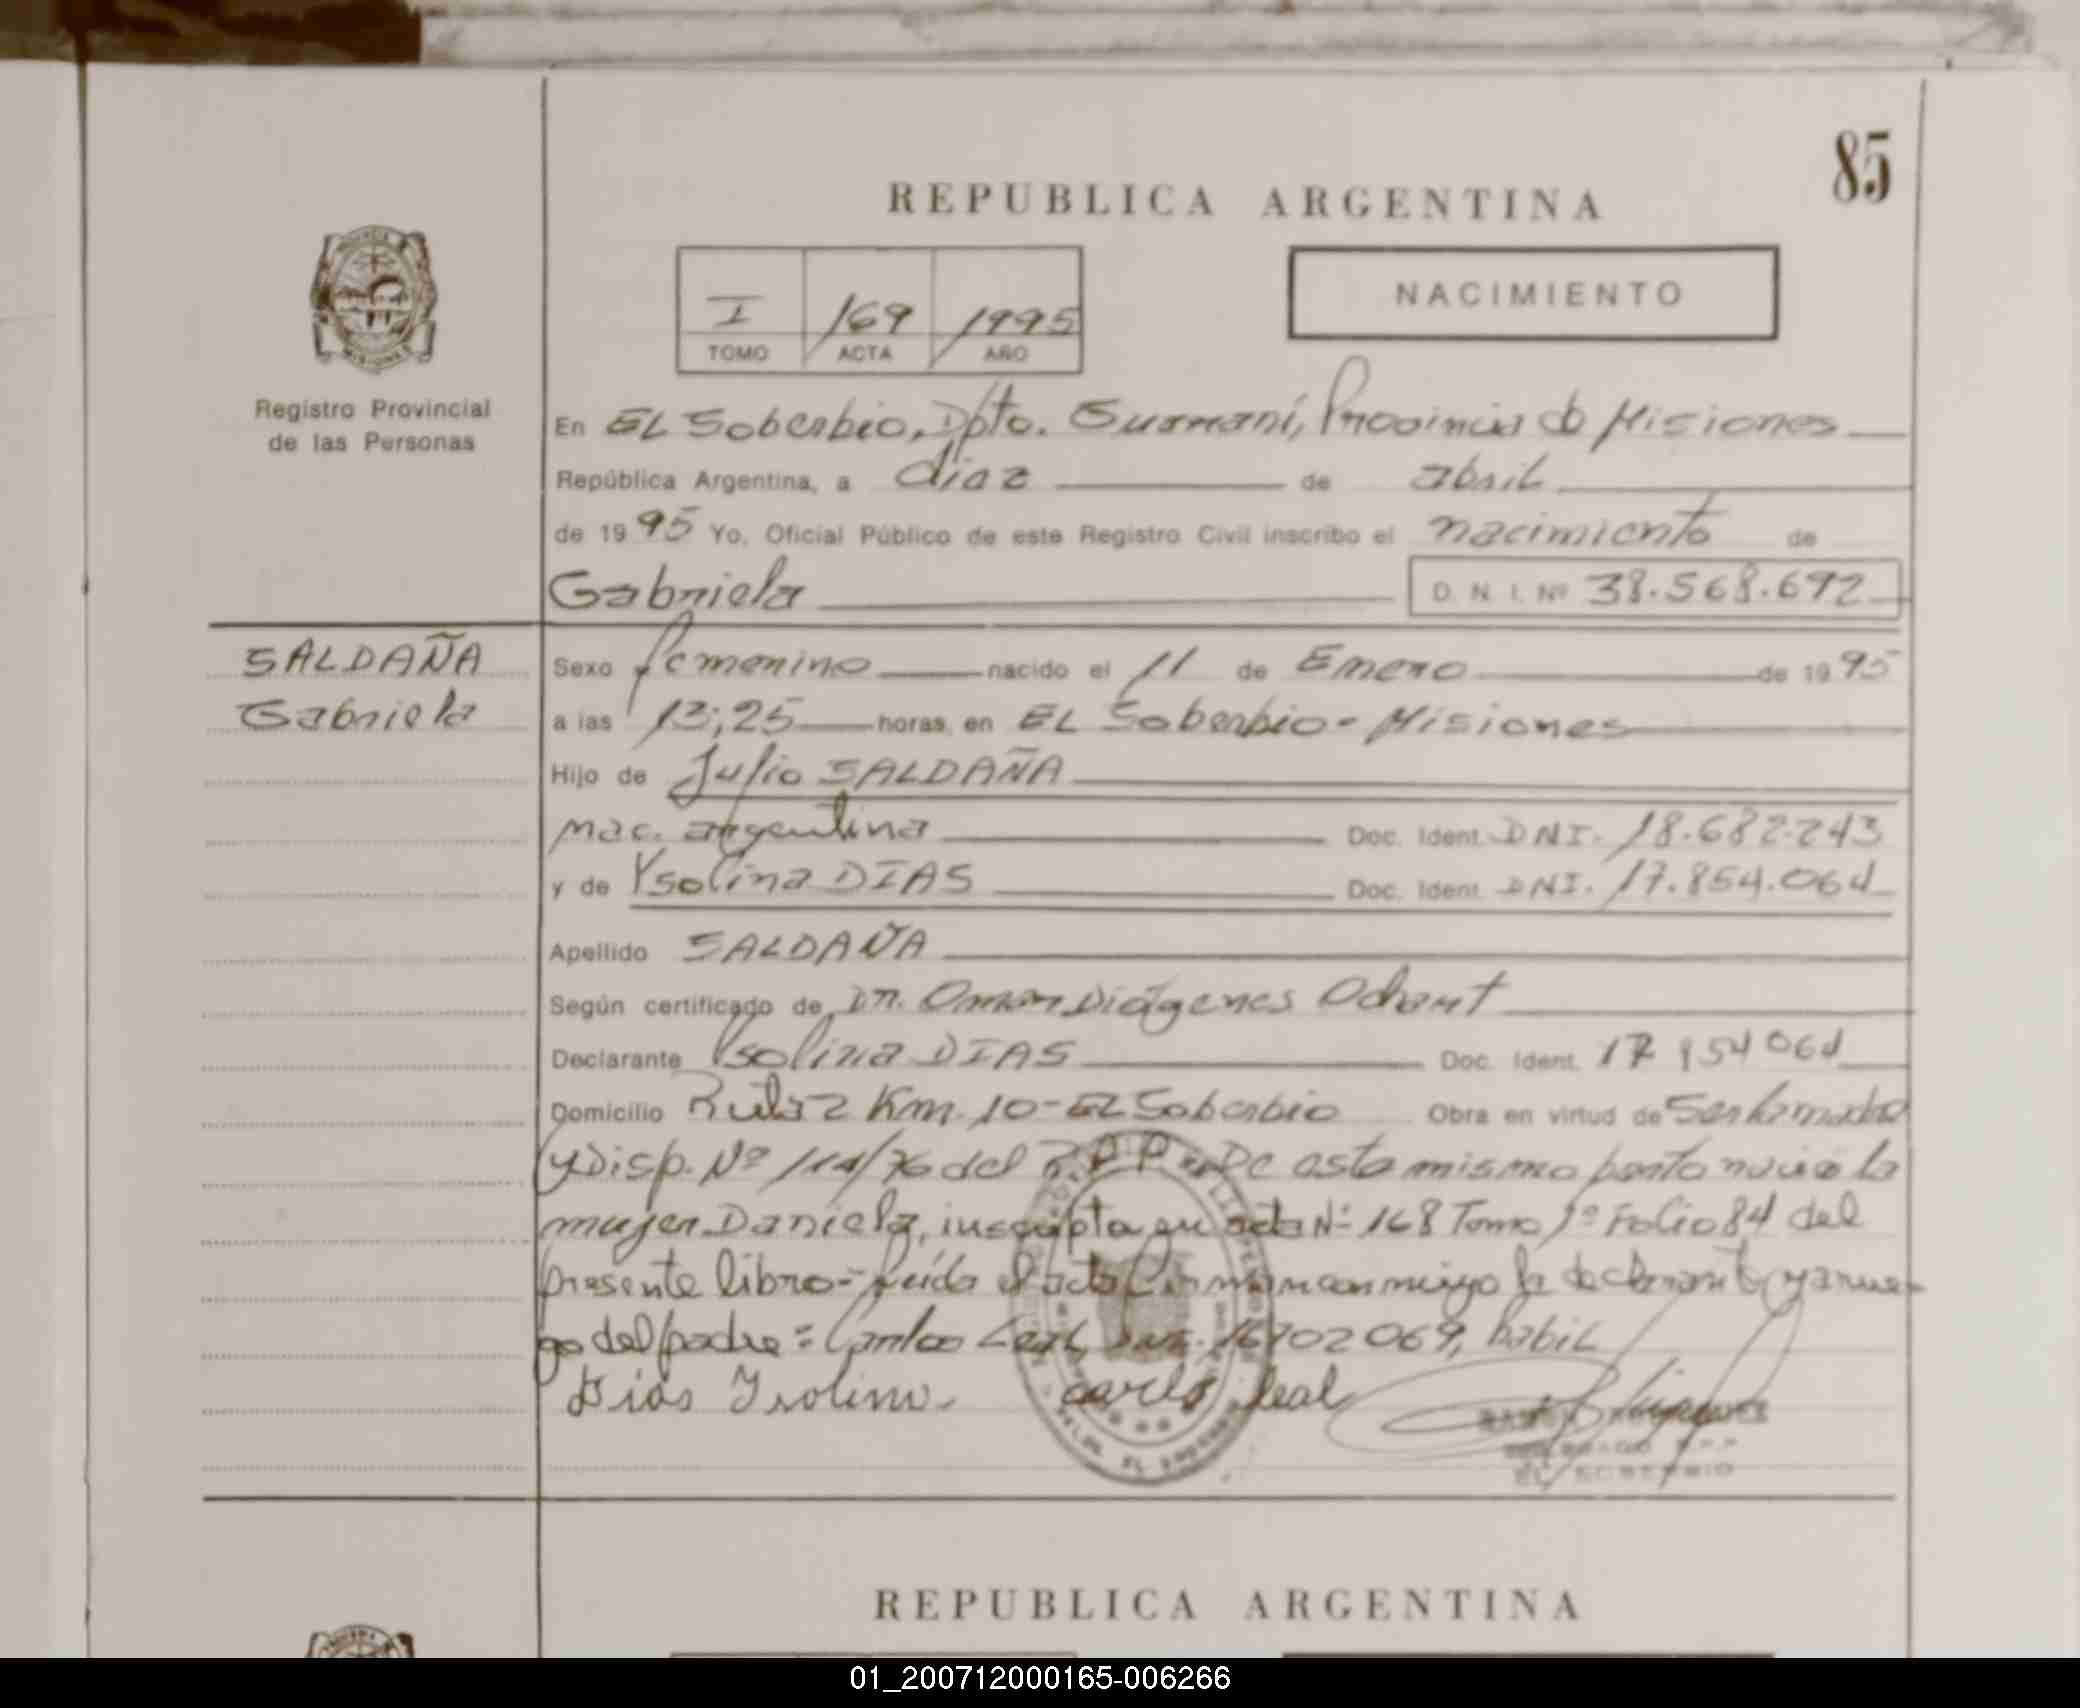 85
REPUBLICA ARGENTINA
I 169 1995
TOMO ACTA AÑO
NACIMIENTO
MISIONES
Registro Provincial
de las Personas
En EL Soberbio, Dpto. Guaraní, Provincia de Misiones
República Argentina, a diez de abril
de 1995 Yo, Oficial Público de este Registro Civil inscribo el nacimiento de
Gabriela D. N. I. Nº 38.568.692
SALDAÑA
Gabriela
Sexo femenino nacido el 11 de Enero de 1995
a las 13;25 horas, en EL Soberbio - Misiones
Hijo de Julio SALDAÑA
Nac. argentina Doc. Ident. DNI. 18.682.243
y de Ysolina DIAS Doc. Ident. DNI. 17.854.061
Apellido SALDAÑA
Según certificado de Dr. Omar Diógenes
Declarante Ysolina DIAS Doc. Ident. 17 854 061
Domicilio Ruta 2 Km. 10 - EL Soberbio Obra en virtud de ser la madre
y Disp. Nº /76 del R.P.P. De este mismo parto nació la
mujer Daniela, inscripta en acta Nº 168 Tomo 1º Folio 84 del
presente libro - Leída el acta firman conmigo la declarante y a rue-
go del padre = Carlos Leal, DNI. 16902069, habil
Dias Isolina Carlos leal
EL SOBERBIO
REPUBLICA ARGENTINA
01_200712000165-006266